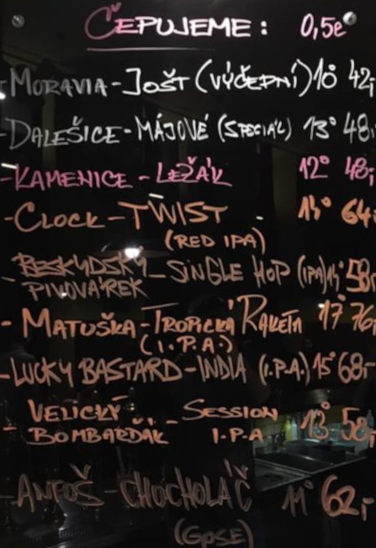 ČEPUJEME: 0,5ℓ
-MORAVIA-JOŠT (VÝČEPNÍ) 10° 42,-
-DALEŠICE-MÁJOVÉ (SPECIÁL) 13° 48,-
-KAMENICE-LEŽÁK 12° 48,-
-CLOCK-TWIST 14° 64,-
(RED IPA)
-BESKYDSKÝ-SINGLE HOP (IPA) 14° 58,-
PIVOVÁREK
-MATUŠKA-TROPICKÁ RAKETA 17° 76,-
(I.P.A.)
-LUCKY BASTARD-INDIA (I.P.A.) 15° 68,-
-VELICKÝ - SESSION 13° 58,-
BOMBARĎÁK I.P.A
-ANTOŠ-CHOCHOLÁČ 11° 62,-
(GOSE)